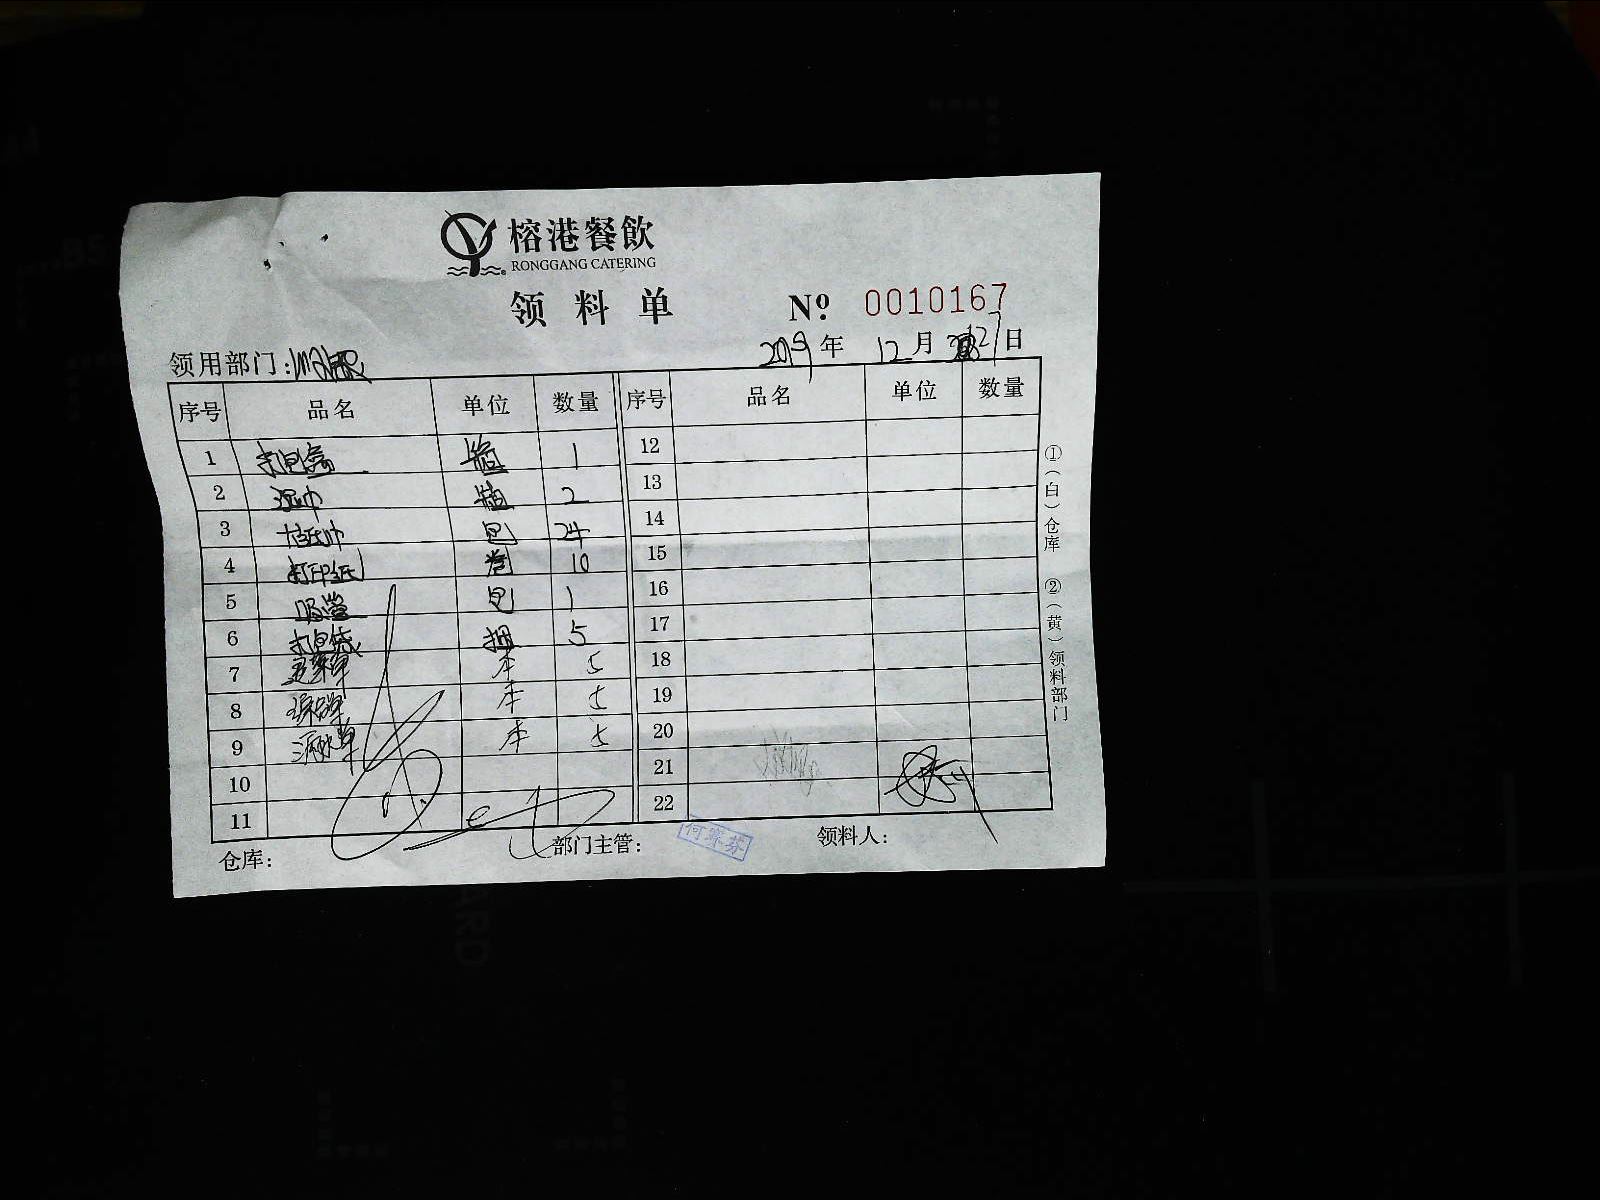 榕港餐飲
RONGGANG CATERING
领料单 Nº 0010167
2019年 12月 27日
领用部门:
序号 品名 单位 数量 序号 品名 单位 数量
1 打包盒 箱 1 12
2 湿巾 箱 2 13
3 纸巾 包 24 14
4 打印纸 卷 10 15
5 吸管 包 1 16
6 打包袋 捆 5 17
7 本 5 18
8 本 5 19
9 酒水单 本 5 20
10 21
11 22
仓库: 部门主管: 何赛芬 领料人:
①(白)仓库 ②(黄)领料部门